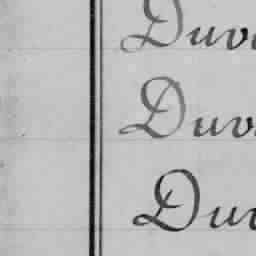 Duv
Duv
Du